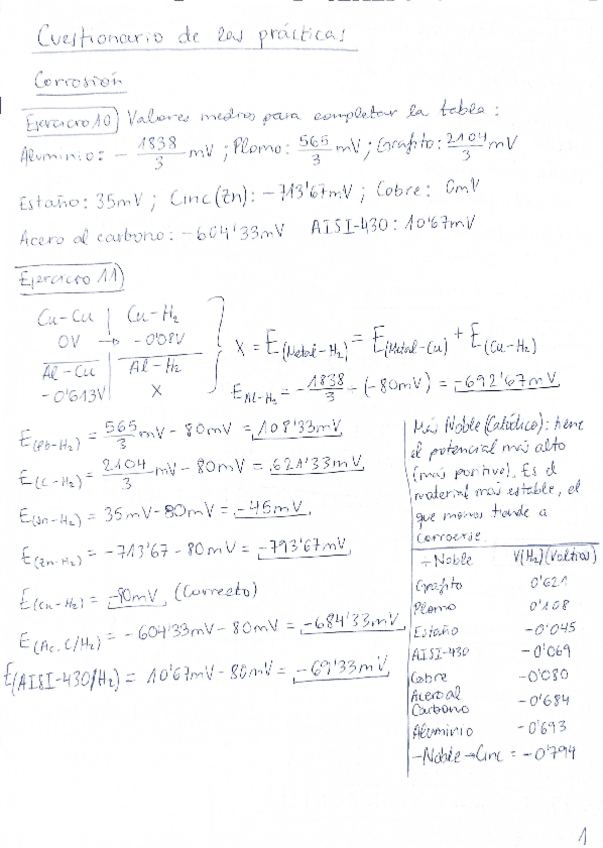 Cuestionario de las prácticas
Corrosión
Ejercicio 10) Valores medios para completar la tabla:
Aluminio: - 1838/3 mV ; Plomo: 565/3 mV ; Grafito: 2104/3 mV
Estaño: 35mV ; Cinc (Zn): -713'67mV ; Cobre: 0mV
Acero al carbono: -604'33mV AISI-430: 10'67mV
Ejercicio 11)
Cu-Cu | Cu-H₂
0V → -0'08V
Al-Cu | Al-H₂
-0'613V | X
X = E(Metal-H₂) = E(Metal-Cu) + E(Cu-H₂)
E Al-H₂ = -1838/3 + (-80mV) = -692'67mV
E(Pb-H₂) = 565/3 mV - 80mV = 108'33mV
E(C-H₂) = 2104/3 mV - 80mV = 621'33mV
E(Sn-H₂) = 35mV - 80mV = -45mV
E(Zn-H₂) = -713'67 - 80mV = -793'67mV
E(Cu-H₂) = -80mV (Correcto)
E(Ac. C/H₂) = -604'33mV - 80mV = -684'33mV
E(AISI-430/H₂) = 10'67mV - 80mV = -69'33mV
Más Noble (Catódico): tiene
el potencial más alto
(más positivo). Es el
material más estable, el
que menos tiende a
corroerse.
+Noble | V(H₂)(Voltios)
Grafito 0'621
Plomo 0'108
Estaño -0'045
AISI-430 -0'069
Cobre -0'080
Acero al
Carbono -0'684
Aluminio -0'693
-Noble → Cinc = -0'794
1